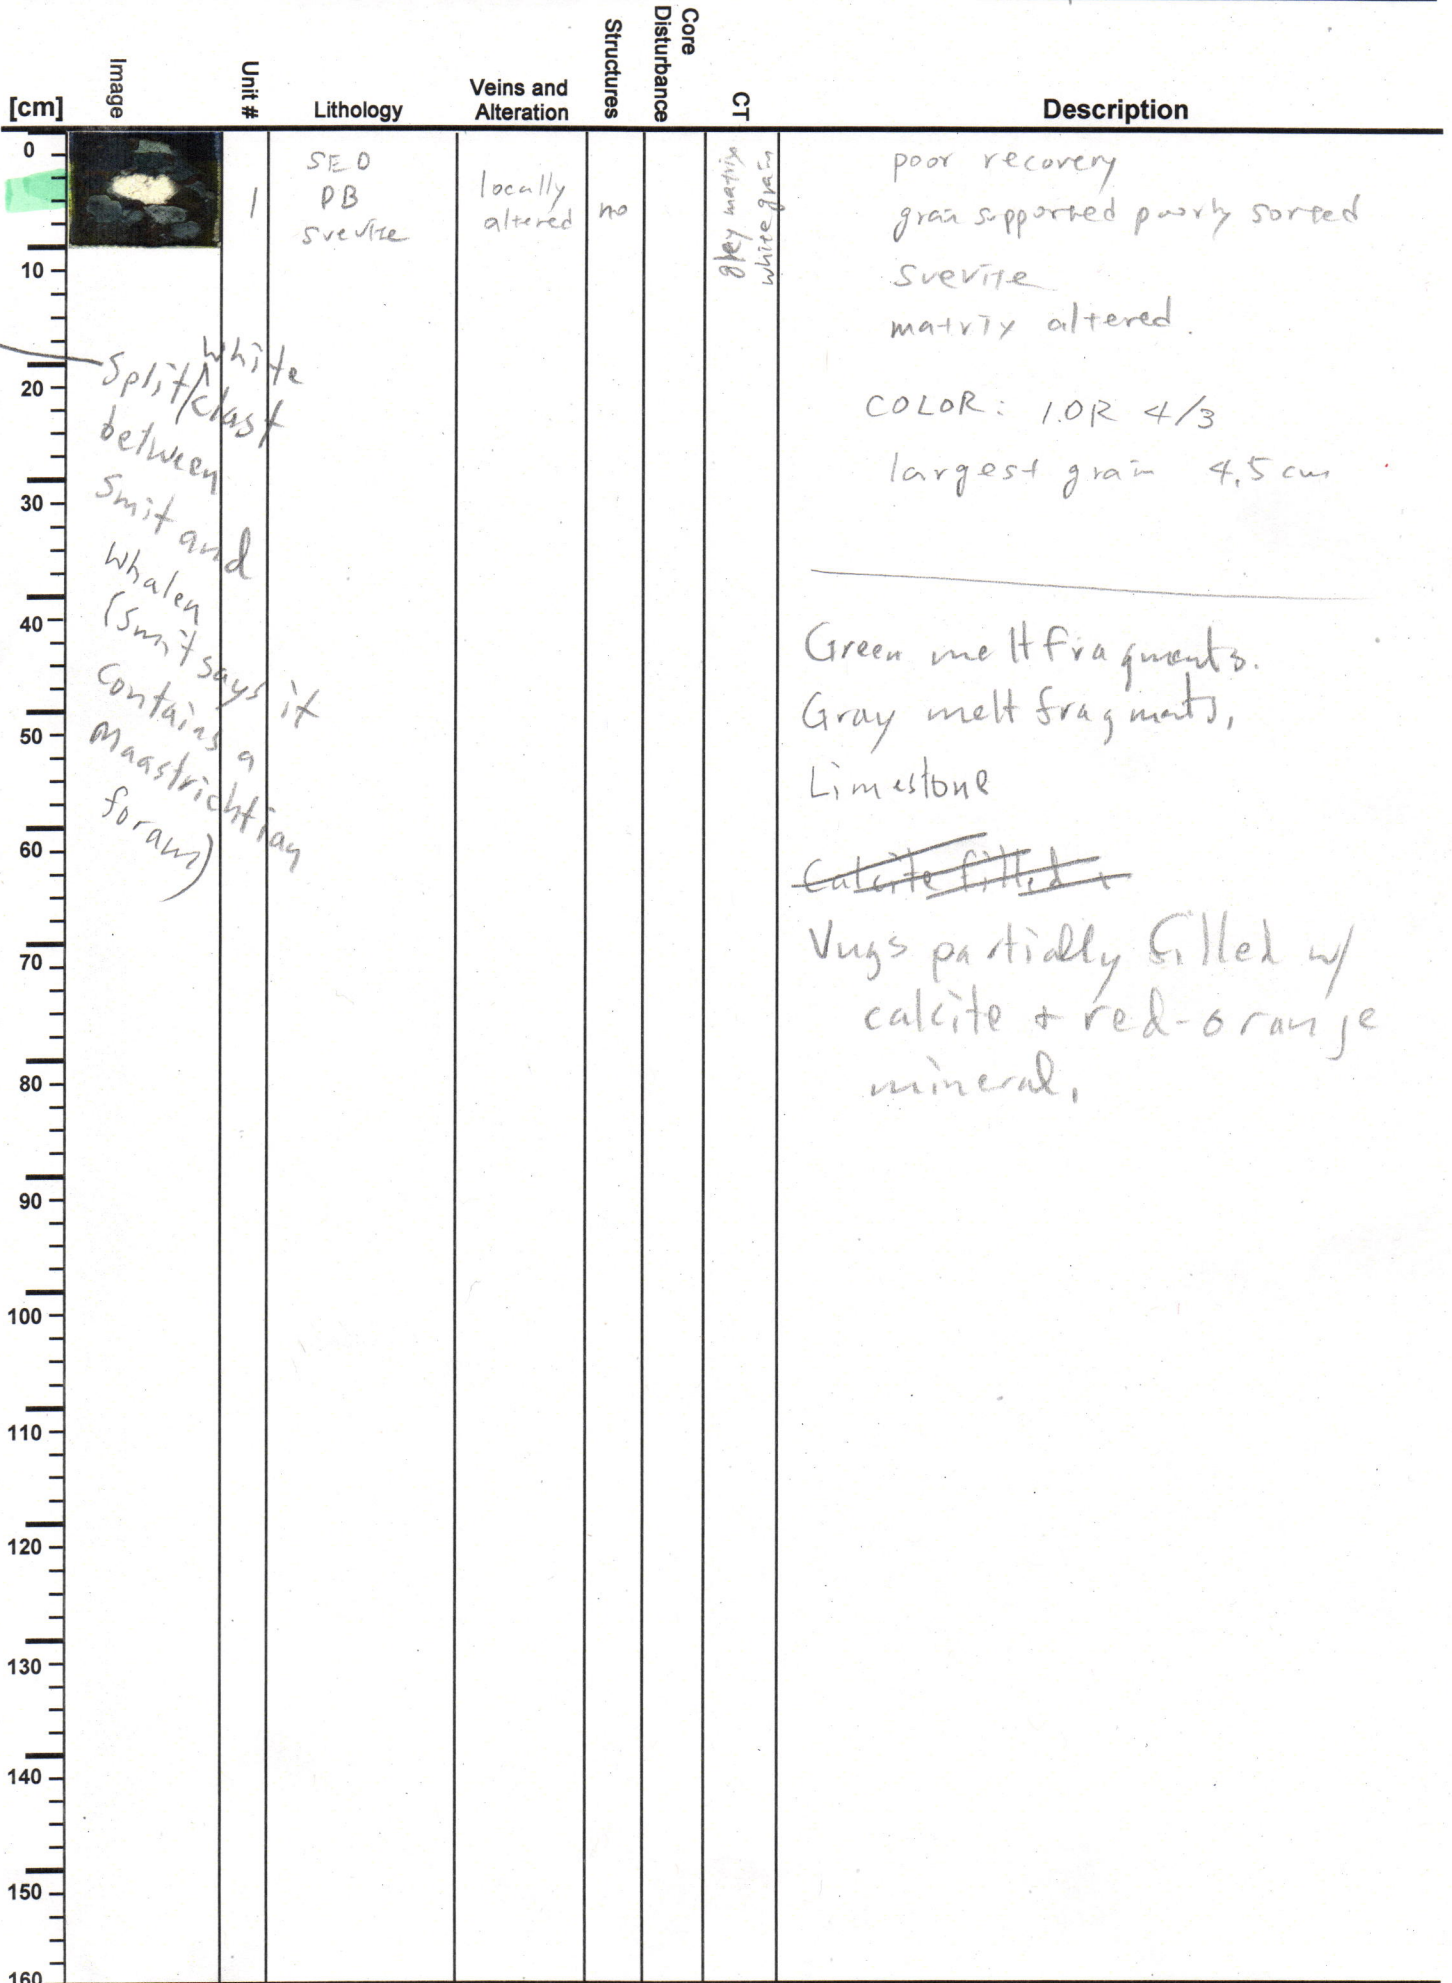 [cm]
Image
Unit #
Lithology
Veins and
Alteration
Structures
Core
Disturbance
CT
Description
0
10
20
30
40
50
60
70
80
90
100
110
120
130
140
150
160
1
SED
PB
suevite
locally
altered
no
grey matrix
white grain
poor recovery
grain supported poorly sorted
suevite
matrix altered.
COLOR: 1.0R 4/3
largest grain 4.5 cm
Green melt fragments.
Gray melt fragments,
Limestone
Calcite filled
Vugs partially filled w/
calcite + red-orange
mineral.
white
Split clast
between
Smit and
Whalen
(Smit says it
contains a
Maastrichtian
foram)